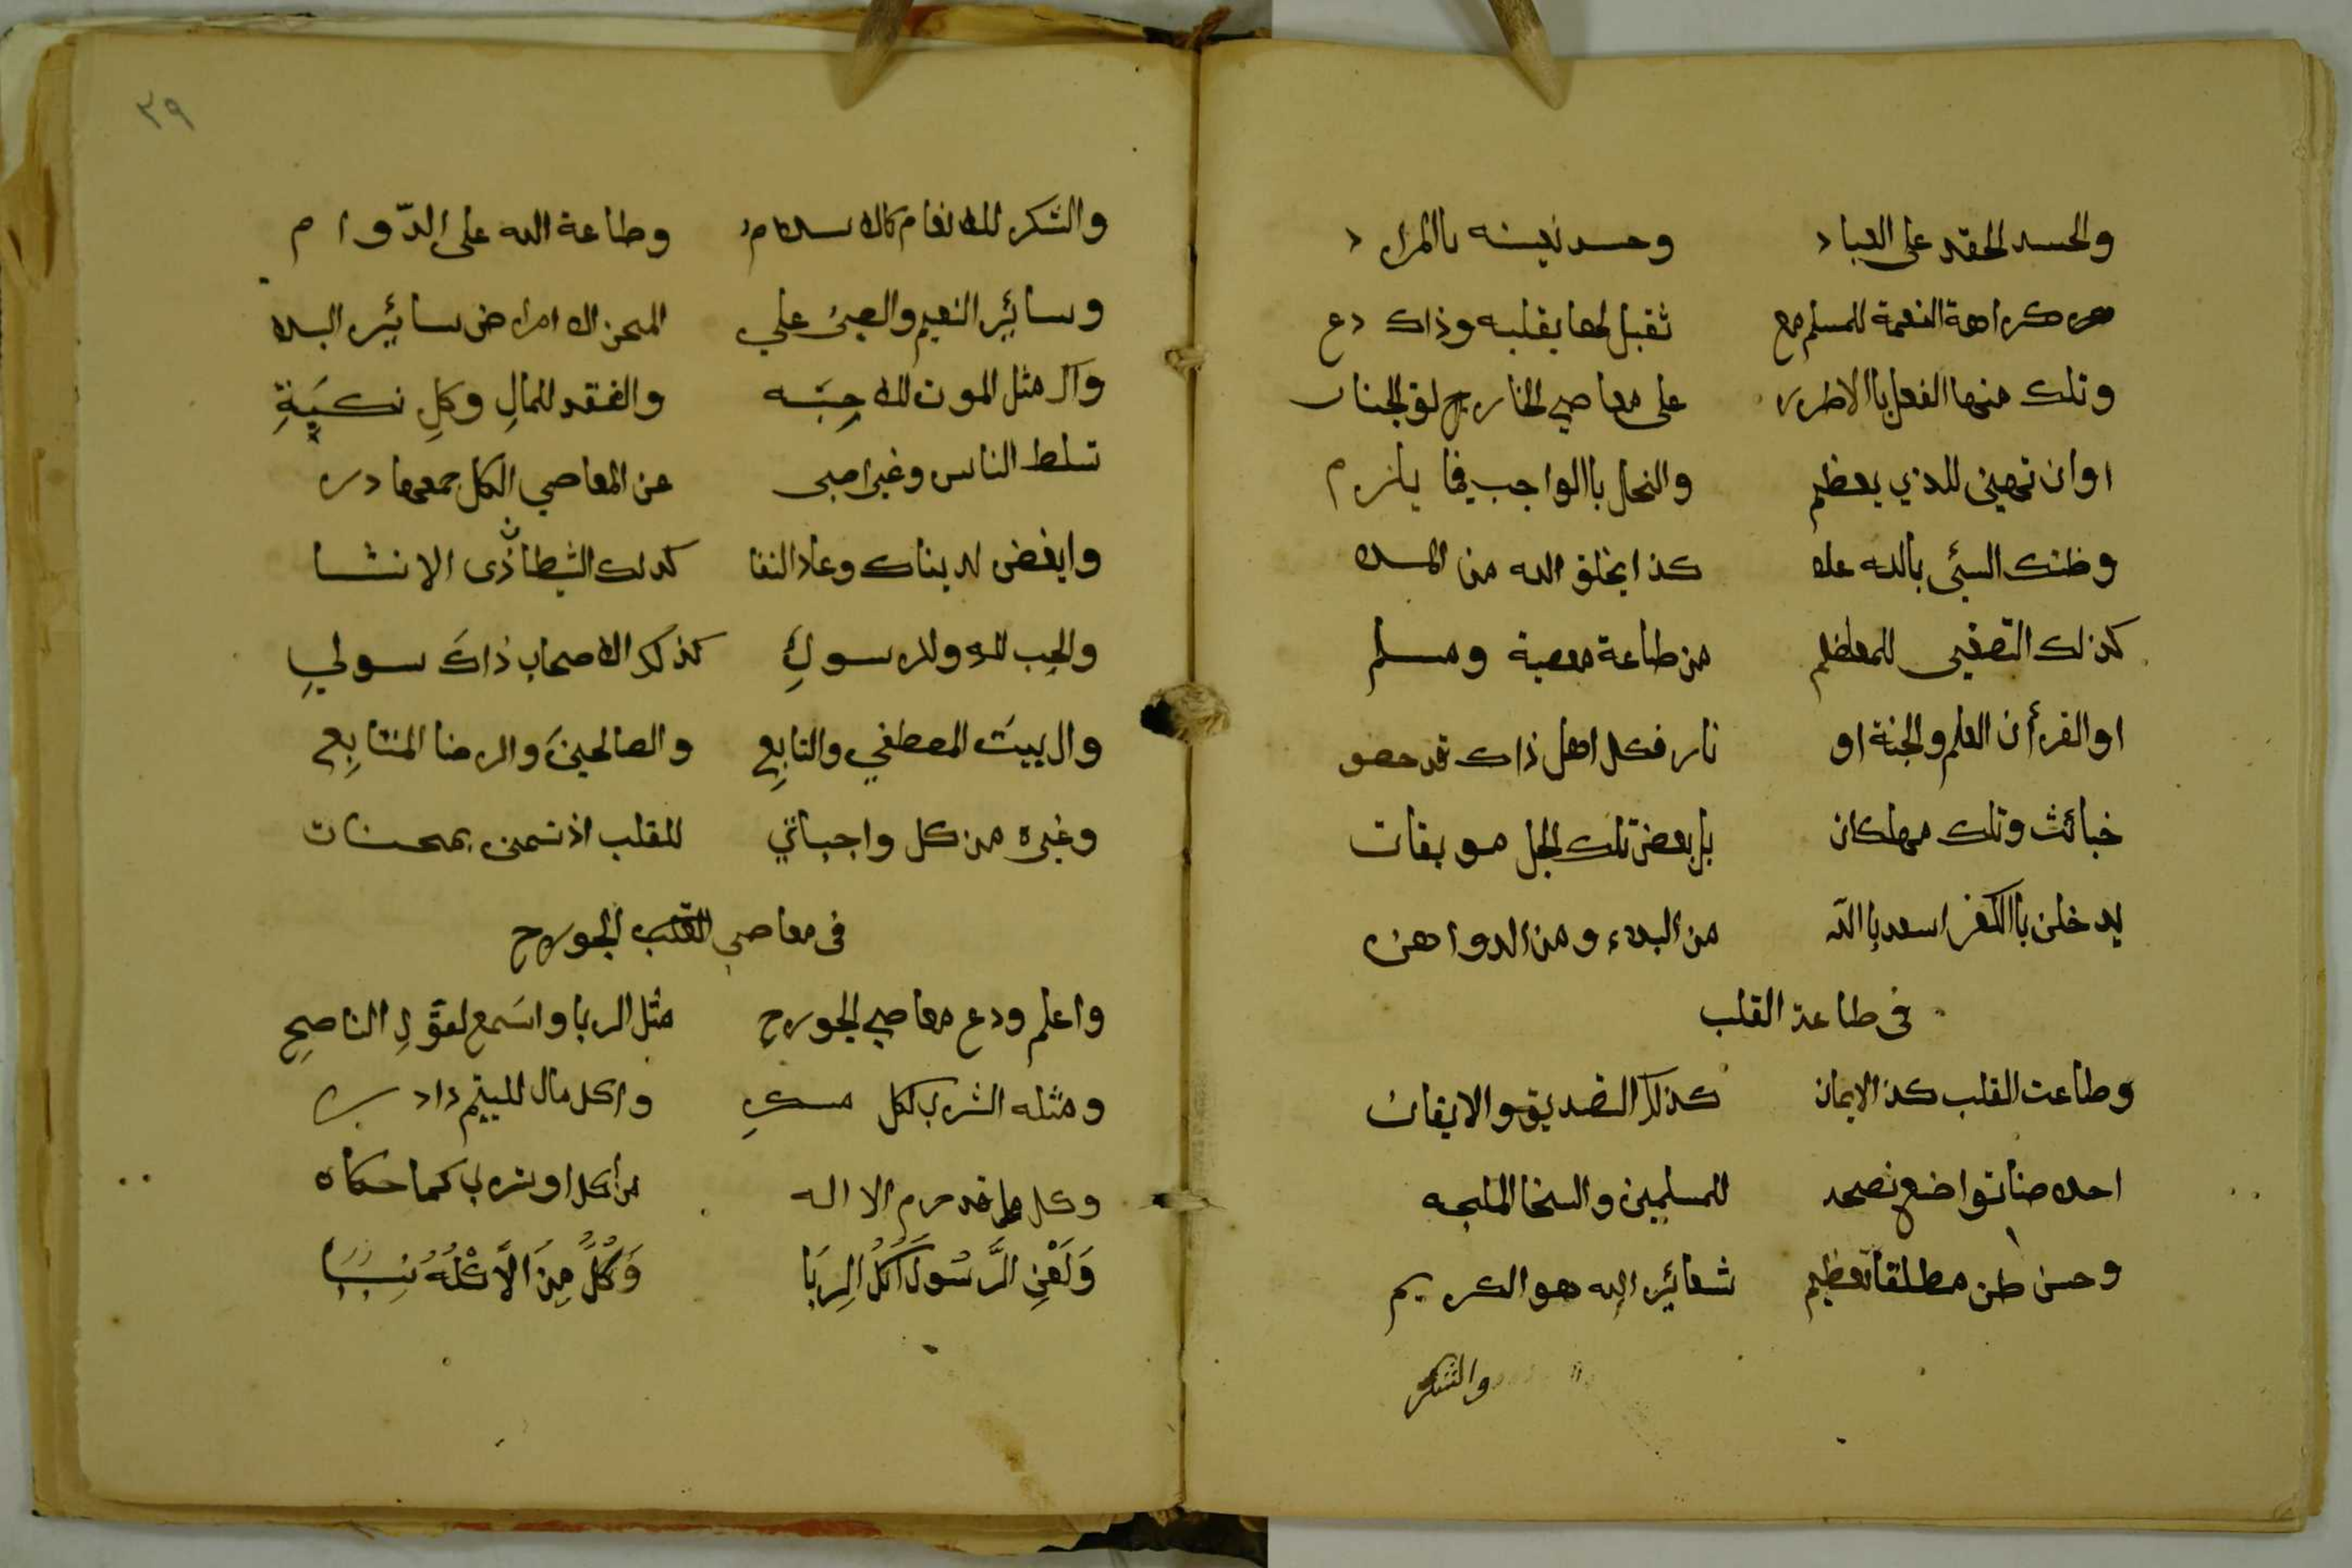 والحسد الحقد على العباد وحسد نعينه باالمراد
هو كراهة النعمة للمسلم مع ثقبل لها بقلبه وذاك دع
وتلك منها الفعل باالاطرر على معاصي الخارج
اوان تهين للذي يعظم والنحل باالواجب فيما يلزم
وظنك السيئ بالله علا كذا بخلق الله من الملا
كذلك التصغير للمعظم من طاعة معصية ومسلم
او القرأن العلم والجنة او نار فكل اهل ذاك قد حضو
خبائث وتلك مهلكان بل بعض تلك الجل موبقات
يدخلن باالكفر اسعد باالله من البلاء ومن الدواهن
في طاعة القلب
وطاعت القلب كذ الايمان كذلك التصديق والايقان
احلاصنا تواضع نصحه للمسلمين والسخا الملجه
وحسن ظن مطلقا تعظيم شعائير الله هو الكريم
والشكر
٣٩
والشكر للانعام كالاسلام وطاعة الله على الدّوام
وسائير النعيم والصبر علي المحن الامراض سائير البلا
وال مثل الموت للاحِبَّه والفقد للمالِ وكلِ نكبَةِ
تسلط الناس وغير اصبر عن المعاصي الكل جمعها در
وابغض لدنياك وعاد النفا كدلك الشيطان ذى الانشا
والحب للهِ وللرسولِ كذلك الاصحاب ذاكَ سولي
وال بيت المصطفي والتابِعِ والصالحينَ والرضا المتتابِعِ
وغيره من كل واجباتي للقلب اذ تسمى بمحسنات
في معاصي القلب الجورح
واعلم ودع معاصي الجورح مثل الربا واسَمع لقَوّلِ الناصِحِ
ومثله الشرب لكل مسكرِ واكل مال لليتيم دادر
وكل ما قد حرم الا اله من أكل او شرب كما حكاه
وَلَعْنِ الرَّسُولَ أَكَلُ الرِبَا وَكُلُّ مِنَ الأَكْلُهُ